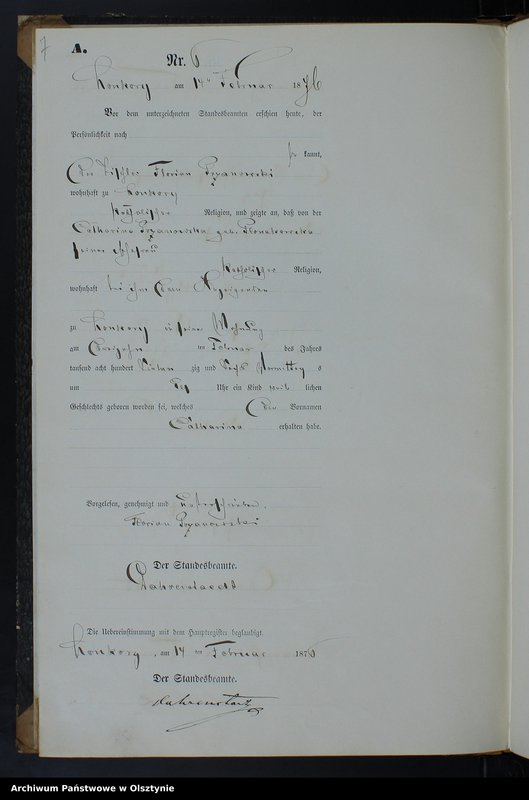 7
A.
Nr. 6
Konkory am 14ten Februar 1876
Vor dem unterzeichneten Standesbeamten erschien heute, der
Persönlichkeit nach
kannt,
der Tischler Florian
wohnhaft zu Konkory
katholischer Religion, und zeigte an, daß von der
Catharina geb.
seiner Ehefrau
katholischer Religion,
wohnhaft bei ihm dem Anzeigenden
zu Konkory in seiner Wohnung
am dreizehn ten Februar des Jahres
tausend acht hundert sieben zig und sechs Vormittag s
um Uhr ein Kind weib lichen
Geschlechts geboren worden sei, welches den Vornamen
Catharina erhalten habe.
Vorgelesen, genehmigt und unterschrieben.
Florian
Der Standesbeamte.
Die Uebereinstimmung mit dem Hauptregister beglaubigt.
Konkory, am 14 ten Februar 1876
Der Standesbeamte.
Archiwum Państwowe w Olsztynie